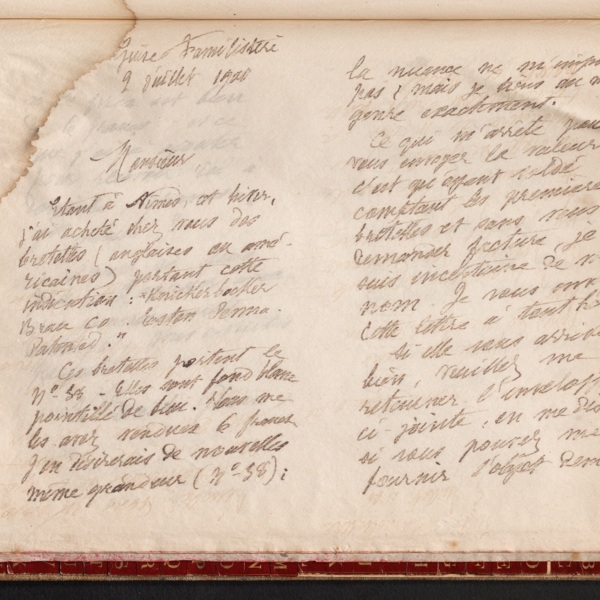 Guise Familistère
2 Juillet 1910
Monsieur
Etant à Nimes cet hiver,
j'ai acheté chez vous des
bretelles (anglaises ou amé-
ricaines) portant cette
indication : "Knickerbocker
Brace Co. Easton Penna.
Patented."
Ces bretelles portent le
N° 38 - Elles sont fond blanc
pointillé de bleu. Vous me
les avez vendues 6 francs
J'en désirerais de nouvelles
même grandeur (N° 38) ;
la nuance ne m'impor
pas ; mais je tiens au m
genre exactement.
Ce qui m'arrête pour
vous envoyer la valeur
c'est qu'ayant soldé
comptant les premières
bretelles et sans vous
demander facture, je
suis incertaine de v
nom. Je vous env
cette lettre à tout h
Si elle vous arrive
bien, veuillez me
retourner l'envelop
ci-jointe, en me dis
si vous pouvez me
fournir l'objet dem